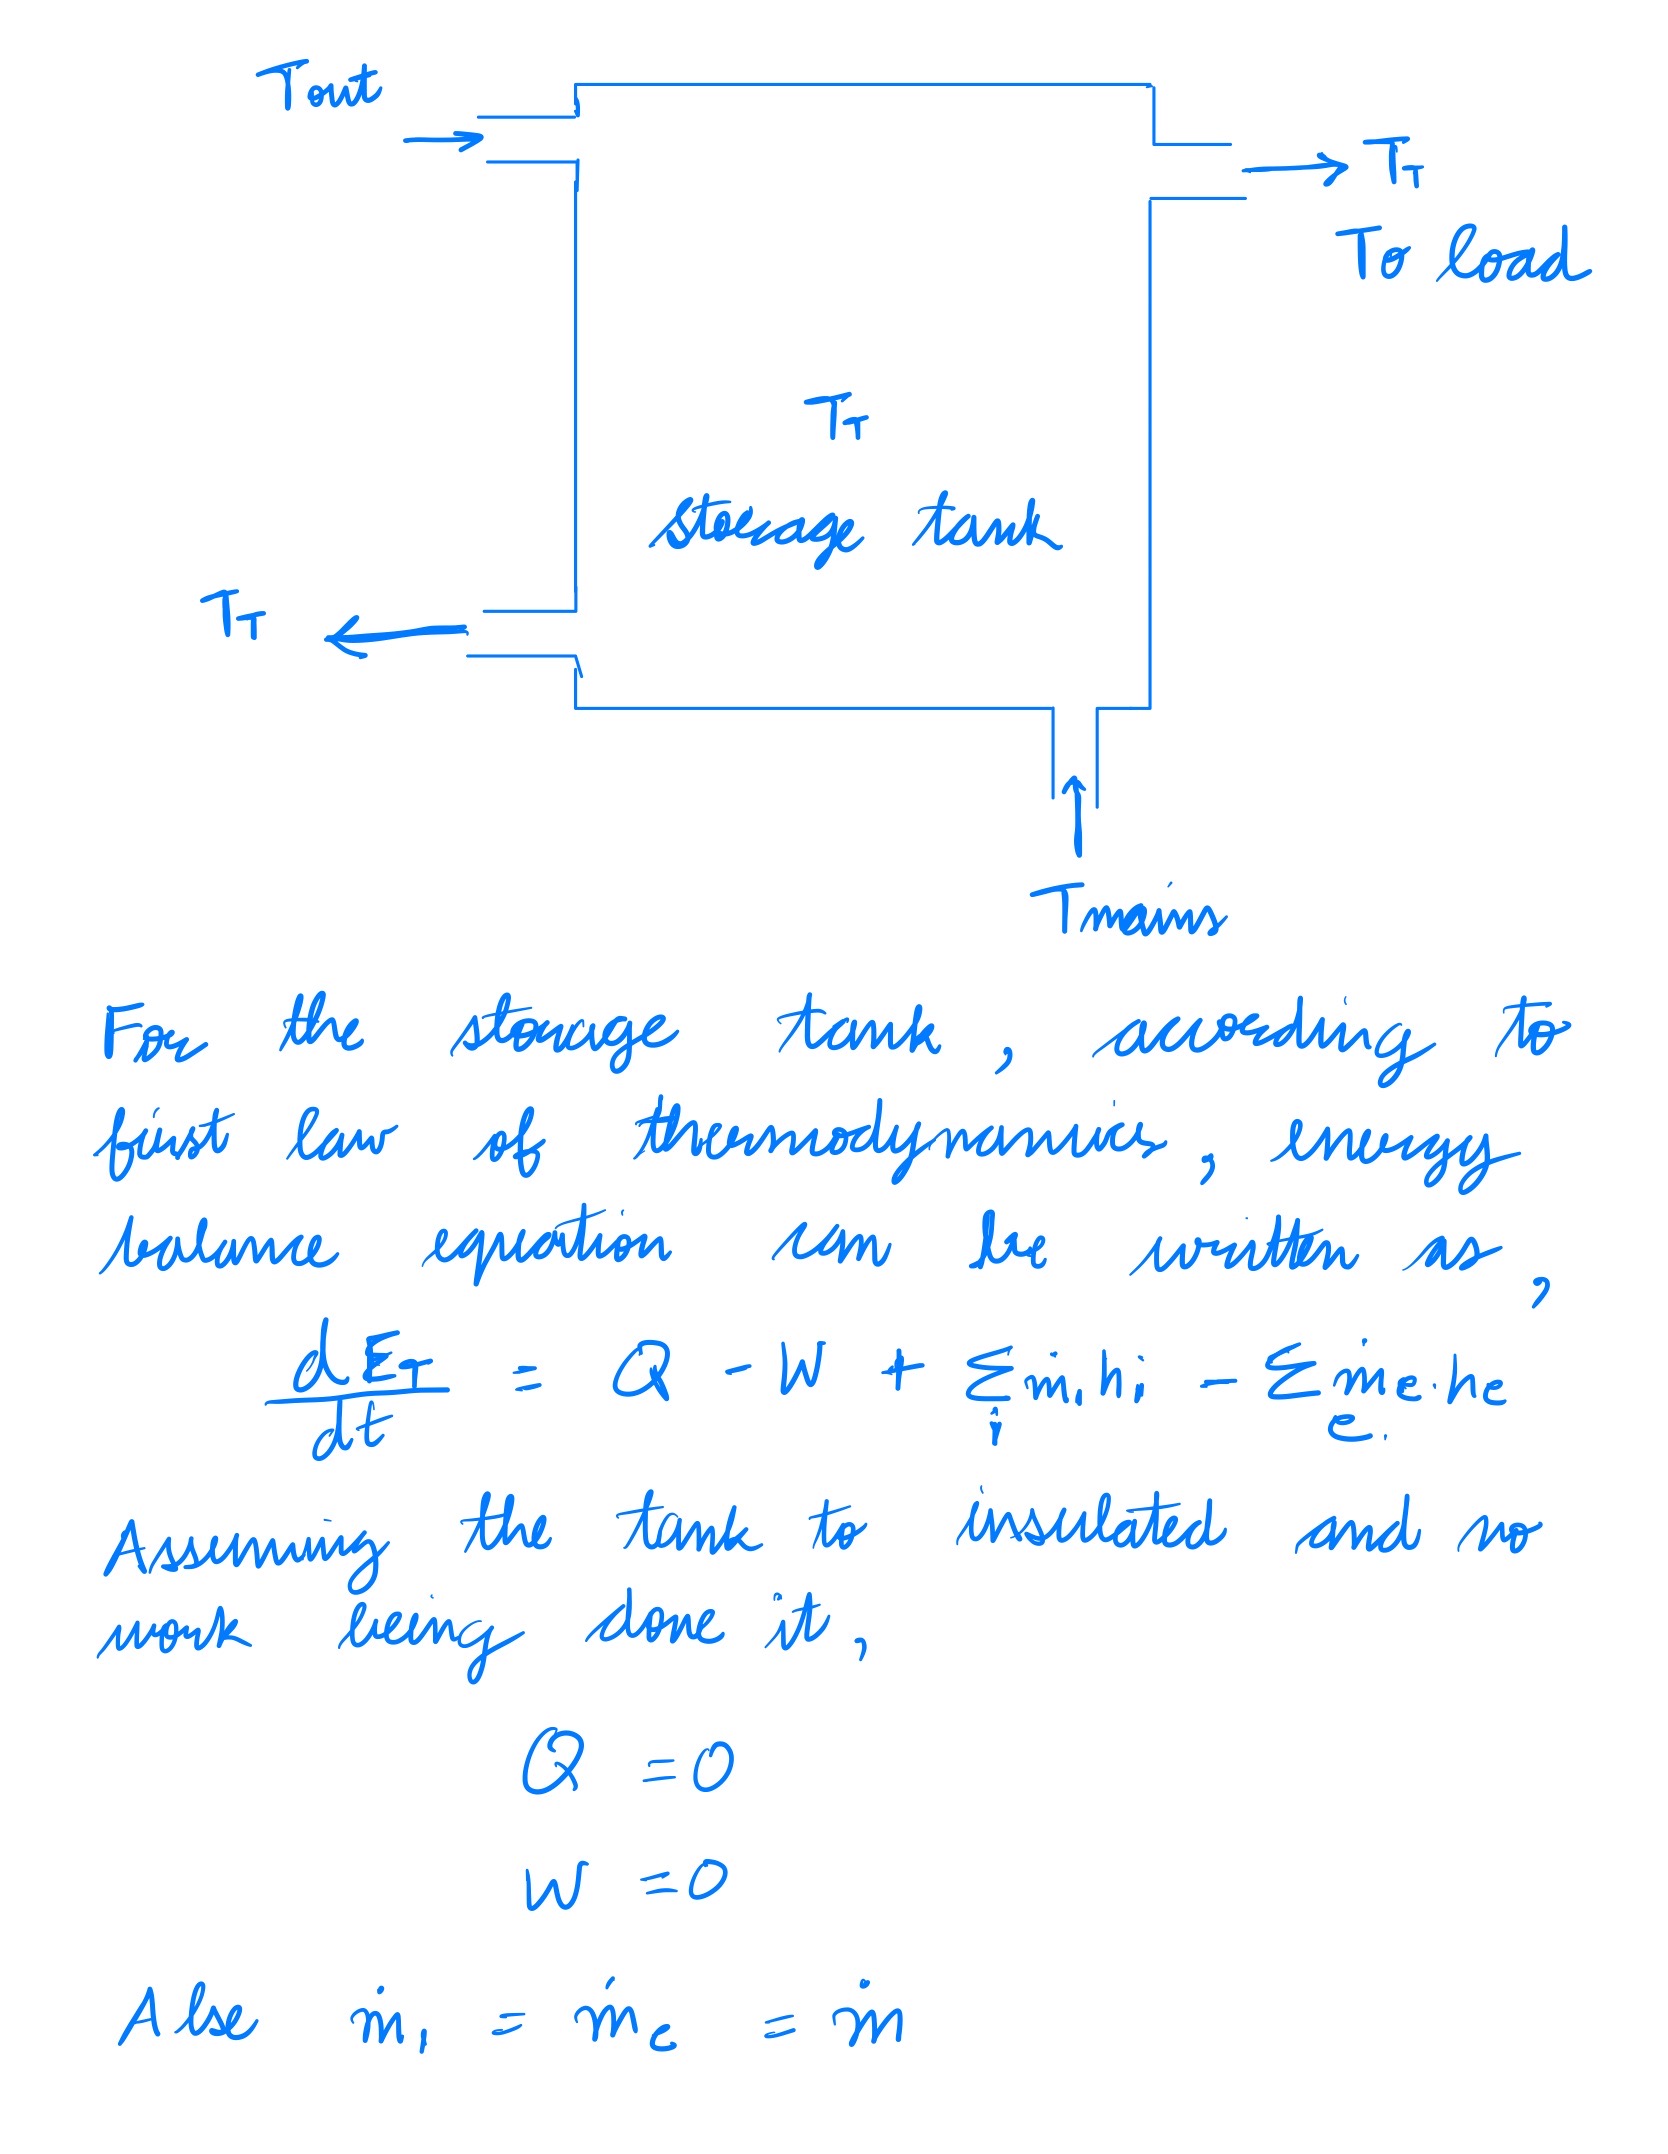 Tout
T_T
To load
T_T
storage tank
T_T
Tmains
For the storage tank, according to
first law of thermodynamics, energy
balance equation can be written as,
dE_T/dt = Q - W + Σ_i ṁ_i h_i - Σ_e ṁ_e·h_e
Assuming the tank to insulated and no
work being done it,
Q = 0
W = 0
Also ṁ_i = ṁ_e = ṁ